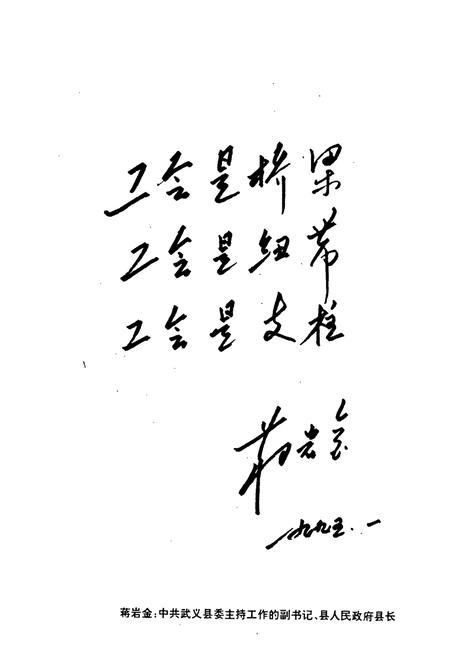 工会是桥梁
工会是纽带
工会是支柱
蒋岩金
一九九五.一
蒋岩金:中共武义县委主持工作的副书记、县人民政府县长